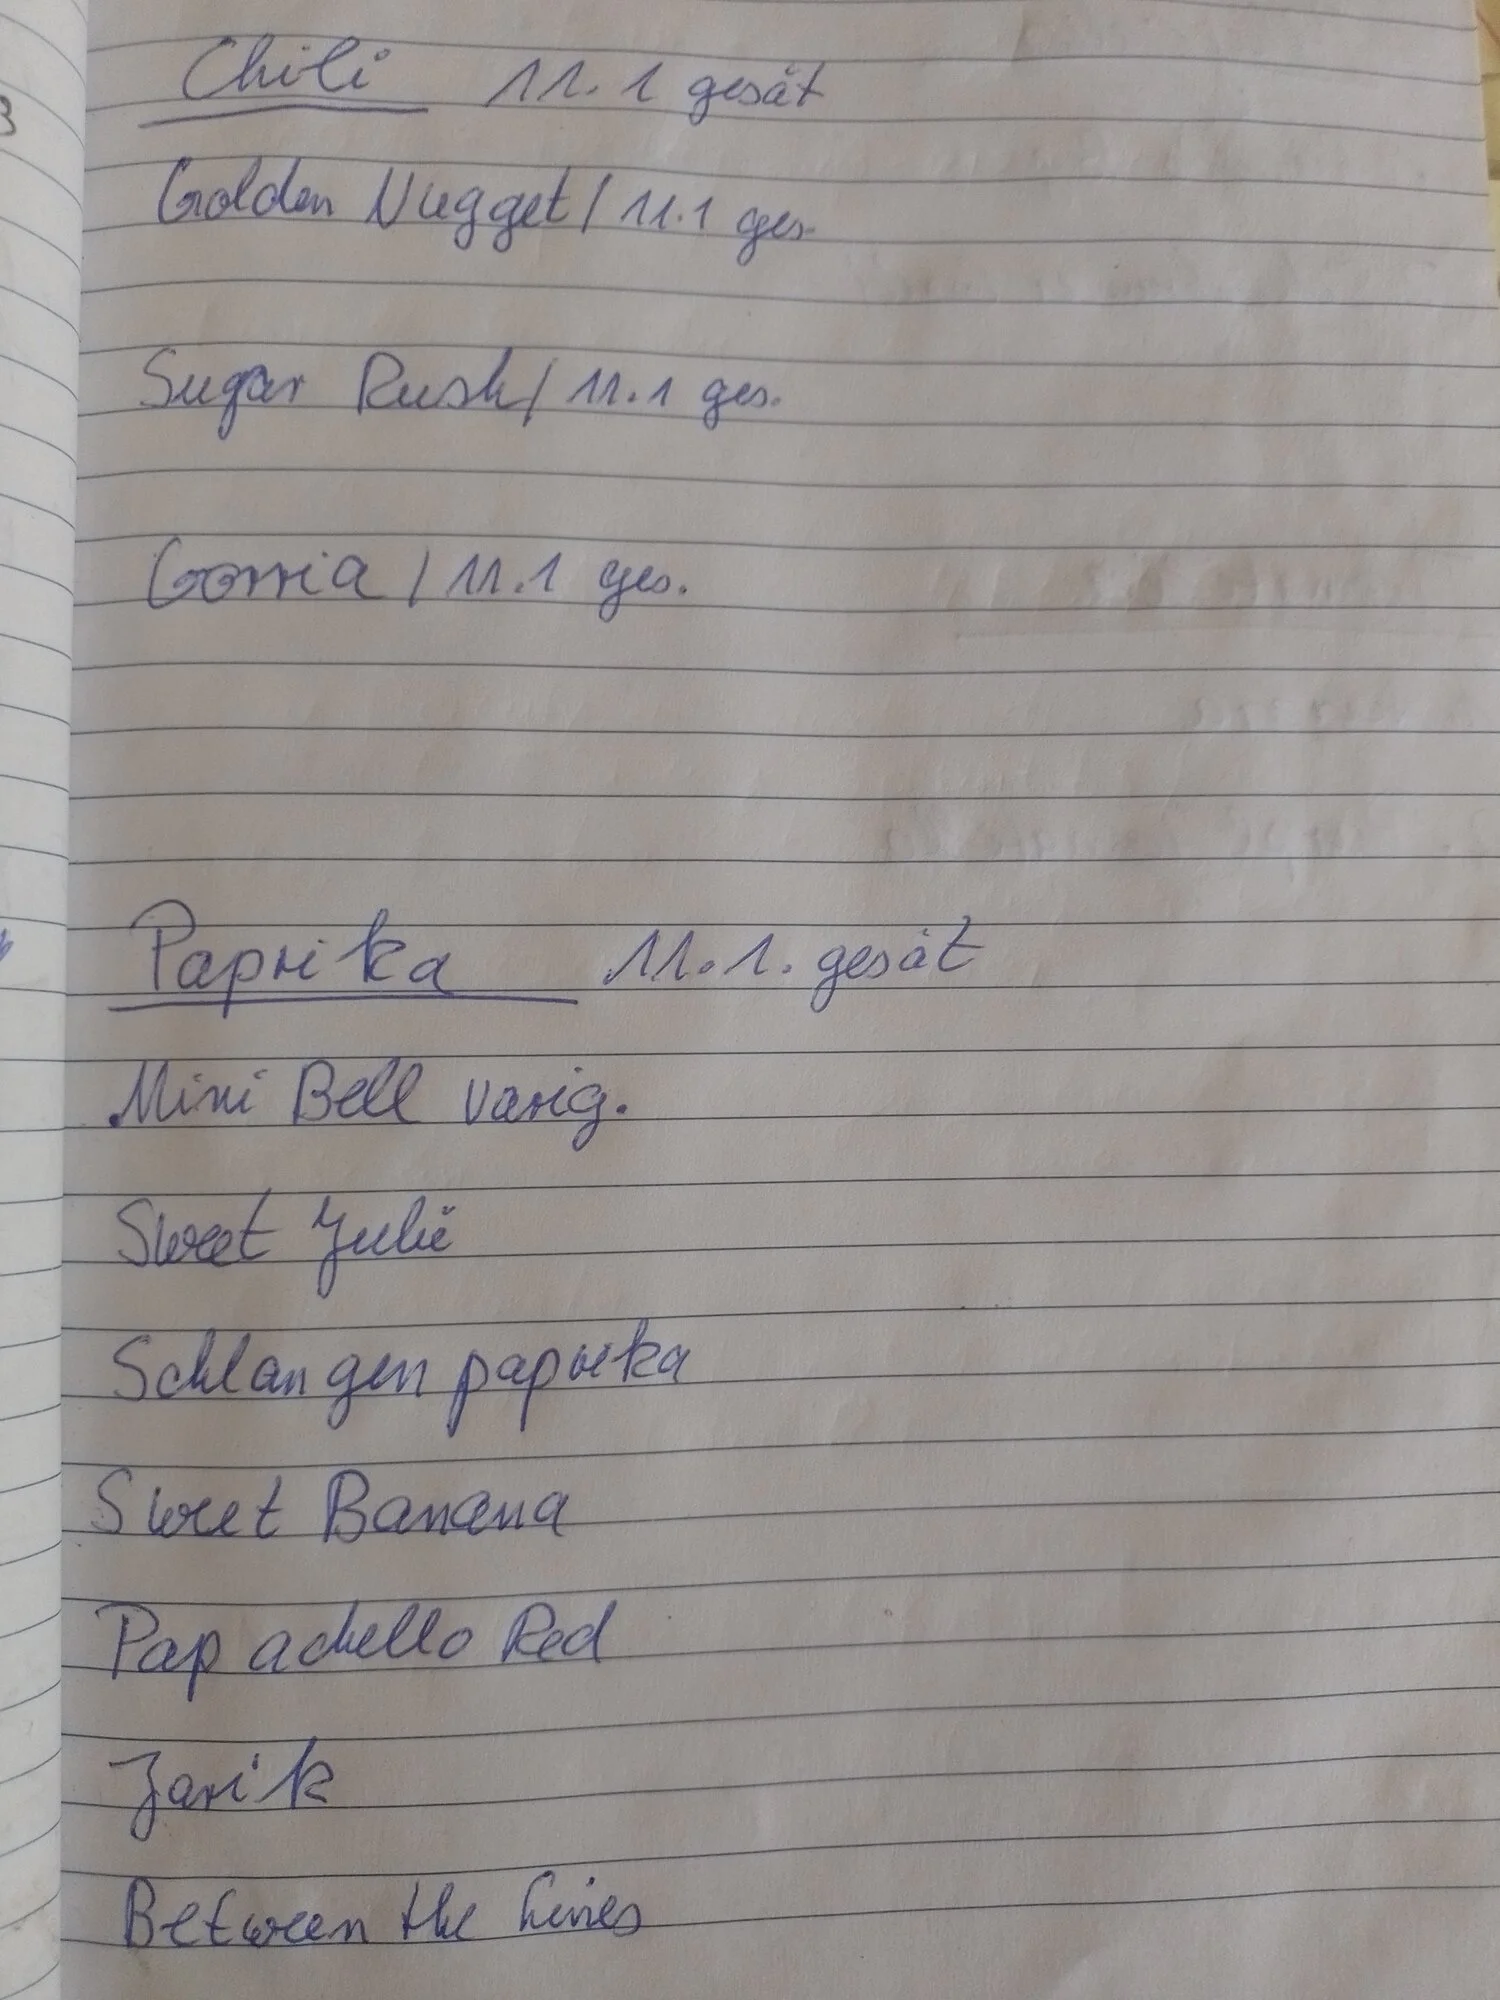 Chili 11.1 gesät
Golden Nugget / 11.1 ges.
Sugar Rush / 11.1 ges.
Gorria / 11.1 ges.
Paprika 11.1. gesät
Mini Bell varig.
Sweet Julie
Schlangenpaprika
Sweet Banana
Papachello Red
Jarik
Between the Lines